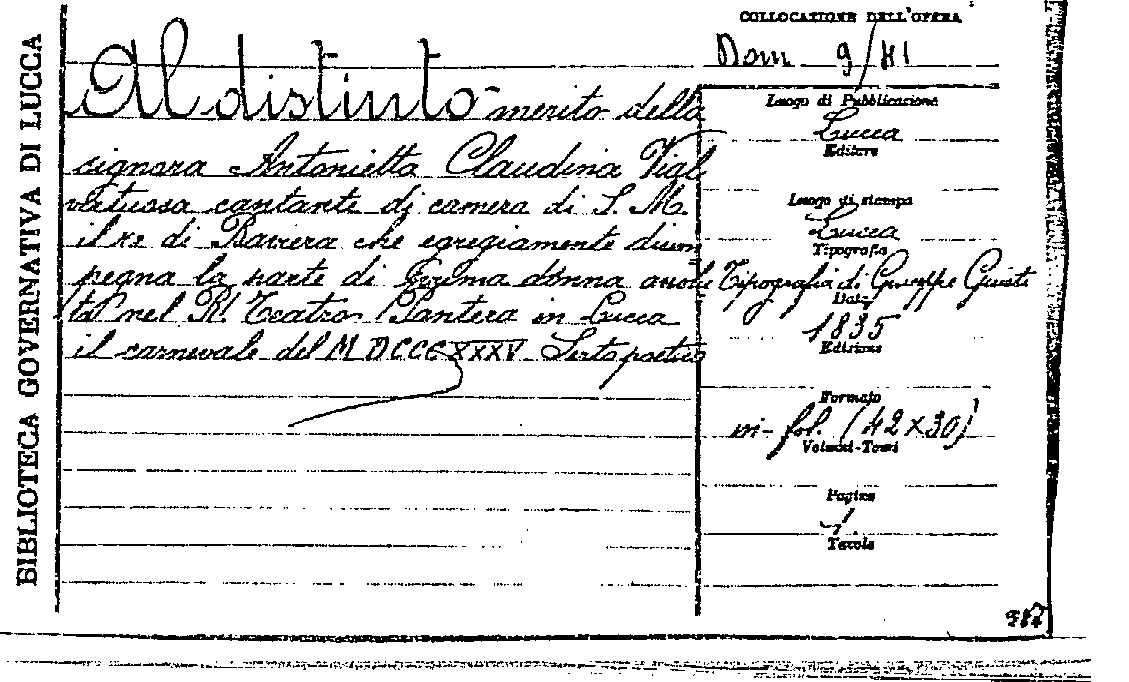 BIBLIOTECA GOVERNATIVA DI LUCCA
COLLOCAZIONE DELL'OPERA
Dom. 9/41
Al distinto merito della
signora Antonietta Claudina Vial
virtuosa cantante di camera di S. M.
il re di Baviera che egregiamente disim
pegna la parte di prima donna assolu
ta nel R. Teatro Pantera in Lucca
il carnevale del MDCCCXXXV Serto poetico
Luogo di Pubblicazione
Lucca
Editore
Luogo di stampa
Lucca
Tipografia
Tipografia di Giuseppe Giusti
Data
1835
Edizione
Formato
in-fol. (42x30)
Volumi-Tomi
Pagine
Tavole